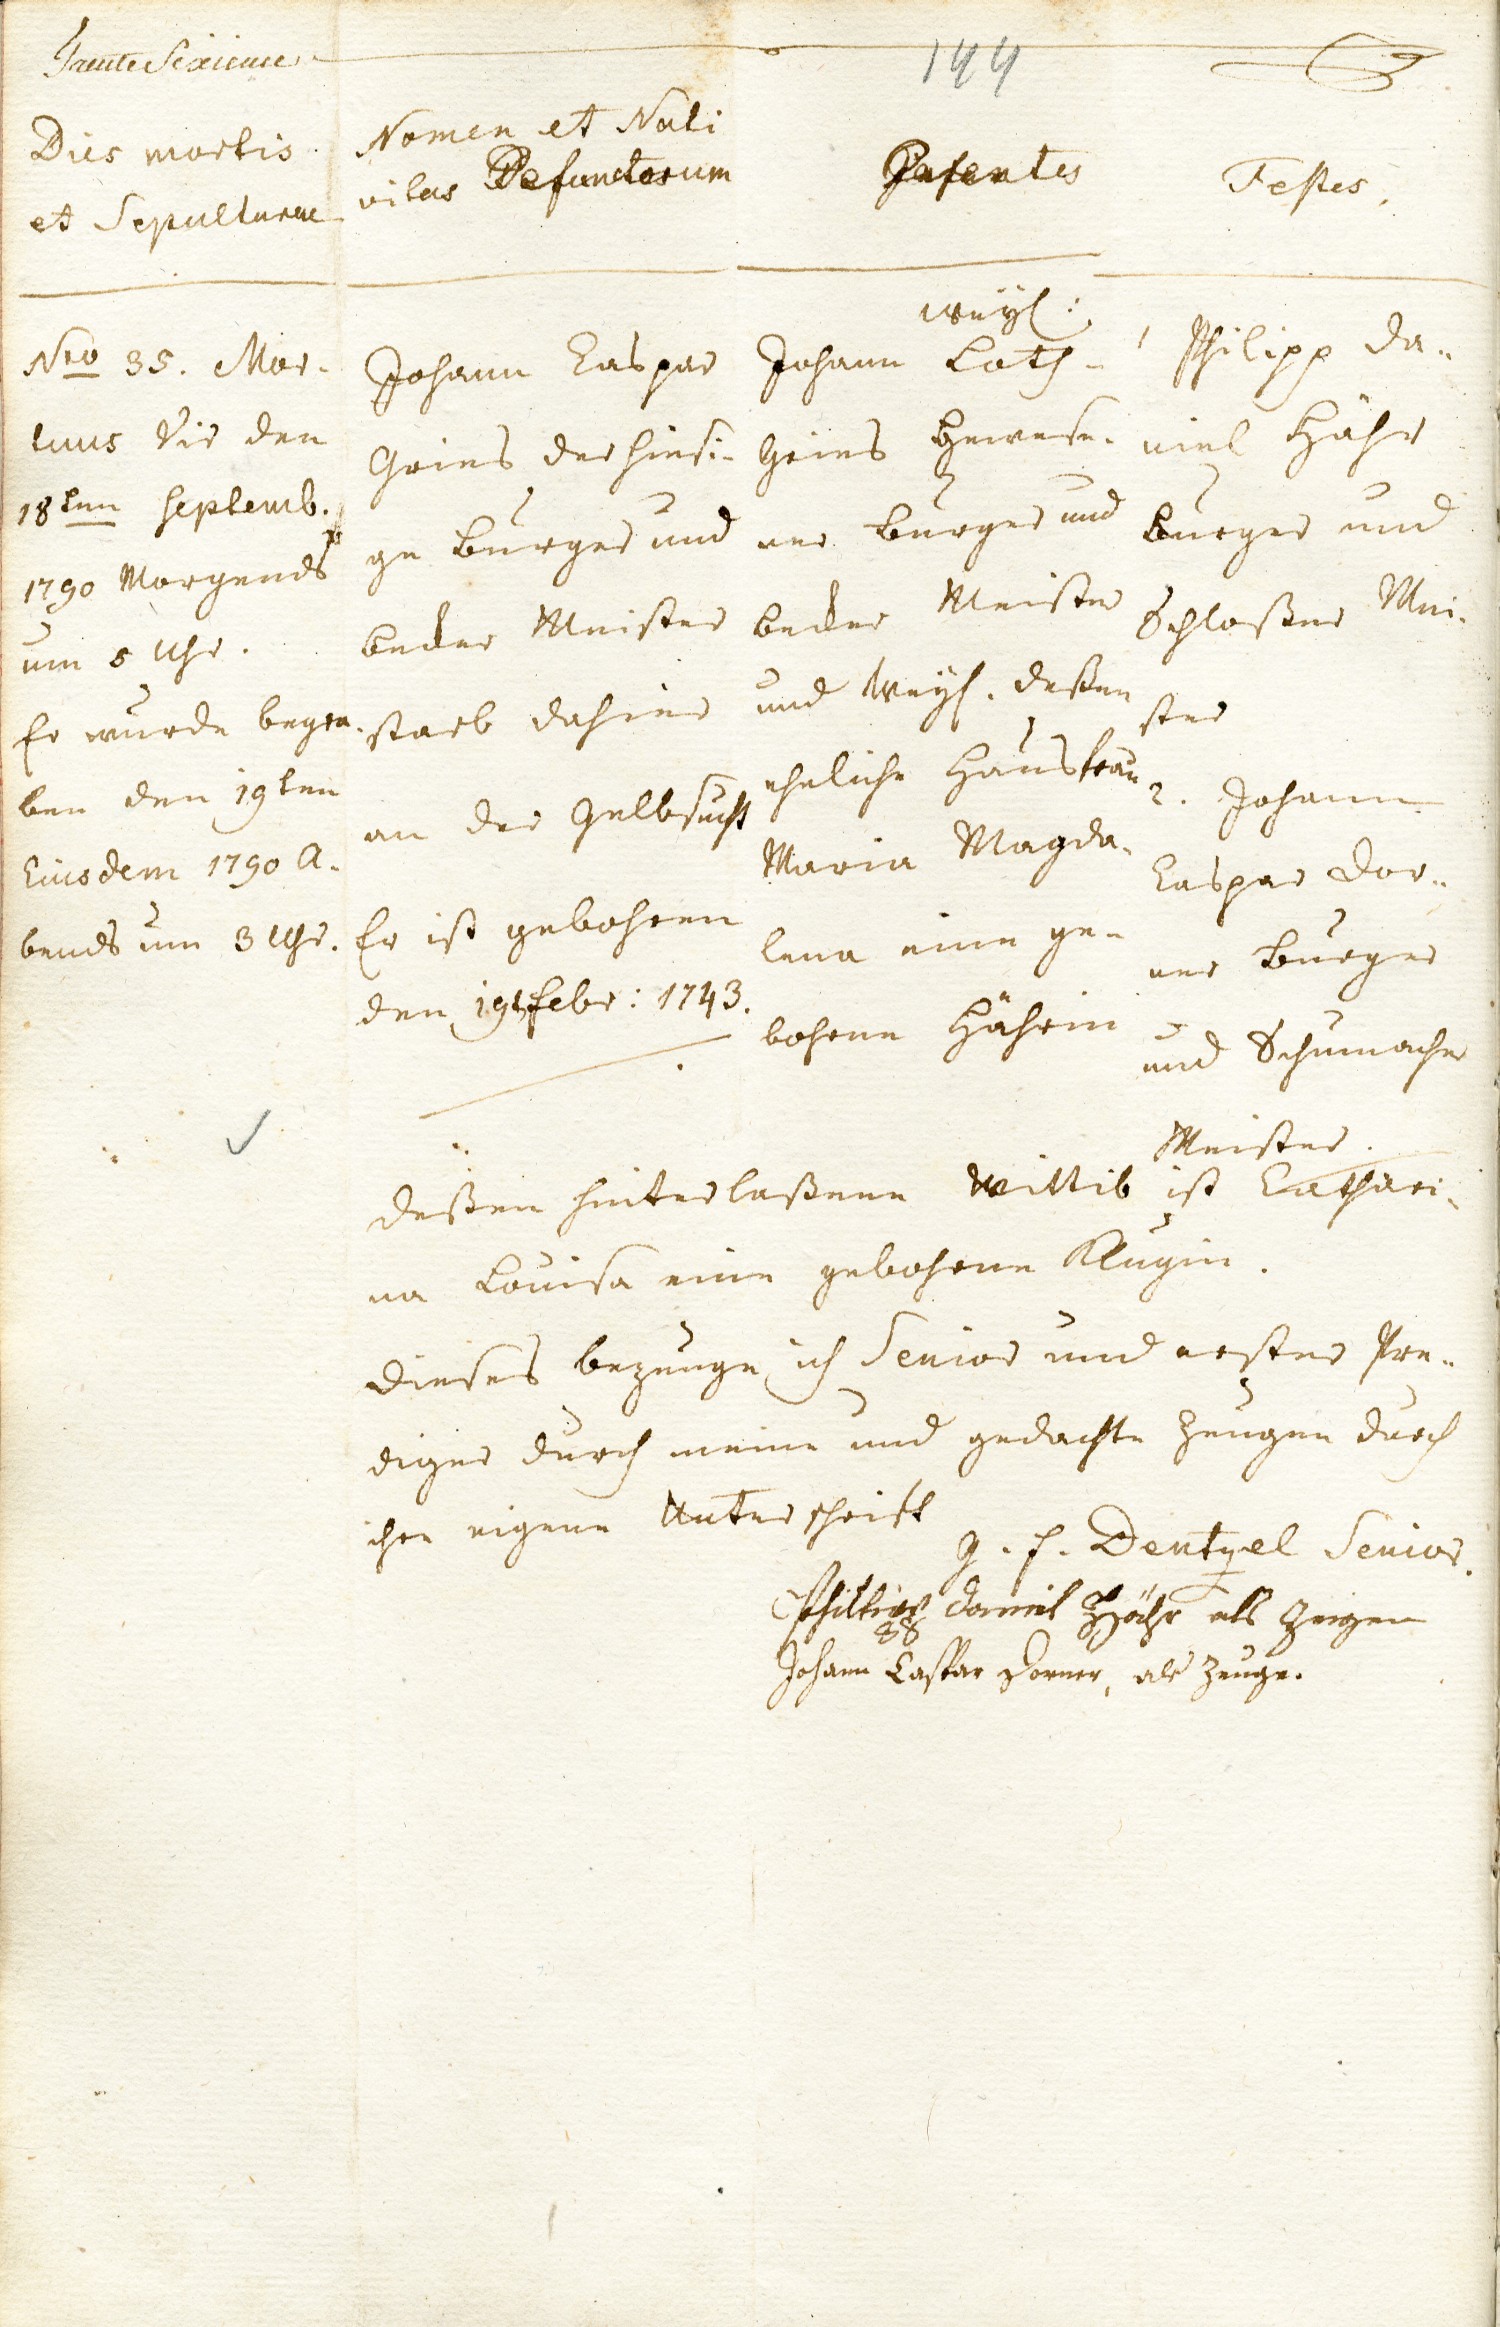 144
Dies mortis
et Sepulturae
Nomen et Nati
vitas Defunctorum
Parentes
Testes.
Nro 35. Mor-
tuus die den
18ten Septemb.
1790 Morgends
um 5 Uhr.
Er wurde begra-
ben den 19ten
Eiusdem 1790 A-
bends um 3 Uhr.
Johann Caspar
Gries der hiesi-
ge Burger und
becker Meister
starb dahier
an der Gelbsucht
Er ist gebohren
den 19t Febr: 1743.
weyl:
Johann Loth-
Gries gewese-
ner Burger und
becker Meister
und weyl. deßen
eheliche Hausfrau
Maria Magda-
lena eine ge-
bohrne Hährin
1 Philipp Da-
niel Hähr
Burger und
Schloßer Mei-
ster
2. Johann
Caspar Dor-
ner Burger
und Schumacher
Meister.
deßen hinterlaßene Wittib ist Cathari-
na Louisa eine gebohrne Klugin.
dieses bezeuge ich Senior und erster Pre-
diger durch meine und gedachte Zeugen durch
ihre eigene Unterschrift
G. F. Dentzel Senior.
Philipp Daniel Hähr als Zeigen
Johann Caspar Dorner, als Zeuge.